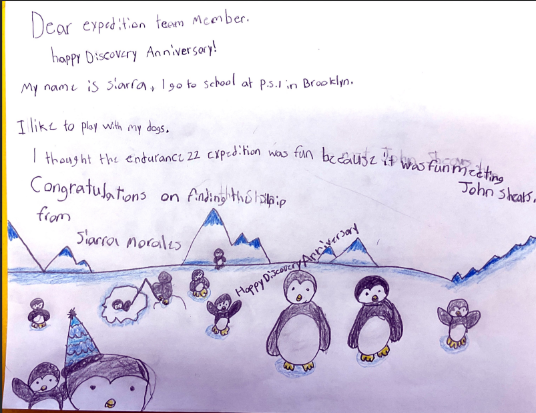 Dear expedition team member.
happy Discovery Anniversary!
My name is Siarra, I go to school at p.s.1 in Brooklyn.
I like to play with my dogs.
I thought the endurance 22 expedition was fun because it was fun meeting
John Shears.
Congratulations on finding the ship
from
Siarra Morales
Happy Discovery Anniversary